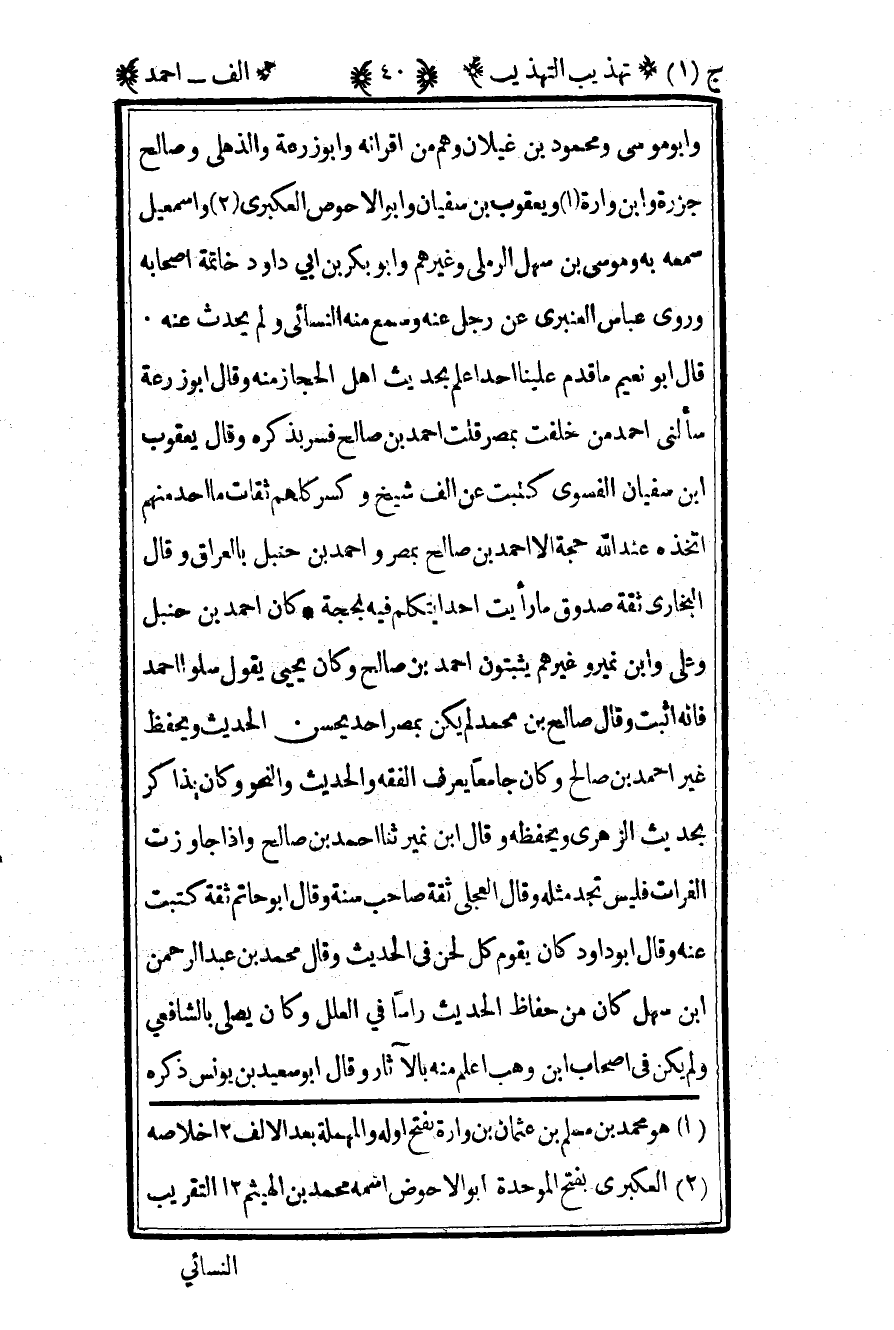 ج (١) تهذيب التهذيب ٤٠ الف ــ احمد
وابوموسى ومحمود بن غيلان وهم من اقرانه وابوزرعة والذهلى وصالح
جزرة وابن وارة (١) ويعقوب بن سفيان وابو الاحوص العكبرى (٢) واسمعيل
سمعه به وموسى بن سهل الرملى وغيرهم وابو بكر بن ابي داود خاتمة اصحابه
وروى عباس العنبرى عن رجل عنه وسمع منه النسائى ولم يحدث عنه ٠
قال ابو نعيم ماقدم علينا احد اعلم بحديث اهل الحجاز منه وقال ابوزرعة
سألنى احمد من خلفت بمصر قلت احمد بن صالح فسر بذكره وقال يعقوب
ابن سفيان الفسوى كتبت عن الف شيخ وكسر كلهم ثقات ما احد منهم
اتخذه عند الله حجة الا احمد بن صالح بمصر و احمد بن حنبل باالعراق وقال
البخارى ثقة صدوق مارأيت احدا يتكلم فيه بحجة * كان احمد بن حنبل
وعلى وابن نمير وغيرهم يثبتون احمد بن صالح وكان يحيى يقول سلوا احمد
فانه اثبت وقال صالح بن محمد لم يكن بمصر احد يحسن الحديث ويحفظ
غير احمد بن صالح وكان جامعاً يعرف الفقه والحديث والنحو وكان يذاكر
بحديث الزهرى ويحفظه وقال ابن نمير ثنا احمد بن صالح واذا جاوزت
الفرات فليس تجد مثله وقال العجلى ثقة صاحب سنة وقال ابو حاتم ثقة كتبت
عنه وقال ابوداود كان يقوم كل لحن فى الحديث وقال محمد بن عبدالرحمن
ابن سهل كان من حفاظ الحديث راساً في العلل وكان يصلى بالشافعي
ولم يكن فى اصحاب ابن وهب اعلم منه بالآثار وقال ابوسعيد بن يونس ذكره
(١) هو محمد بن مسلم بن عثمان بن وارة بفتح اوله والمهملة بعد الالف ١٢ خلاصه
(٢) العكبرى بفتح الموحدة ابو الاحوض اسمه محمد بن الهيثم ١٢ التقريب
النسائي